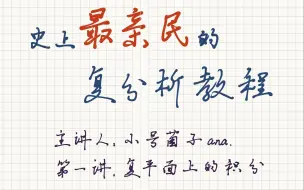 史上最亲民的
复分析教程
主讲人：小号菌子ana.
第一讲：复平面上的积分